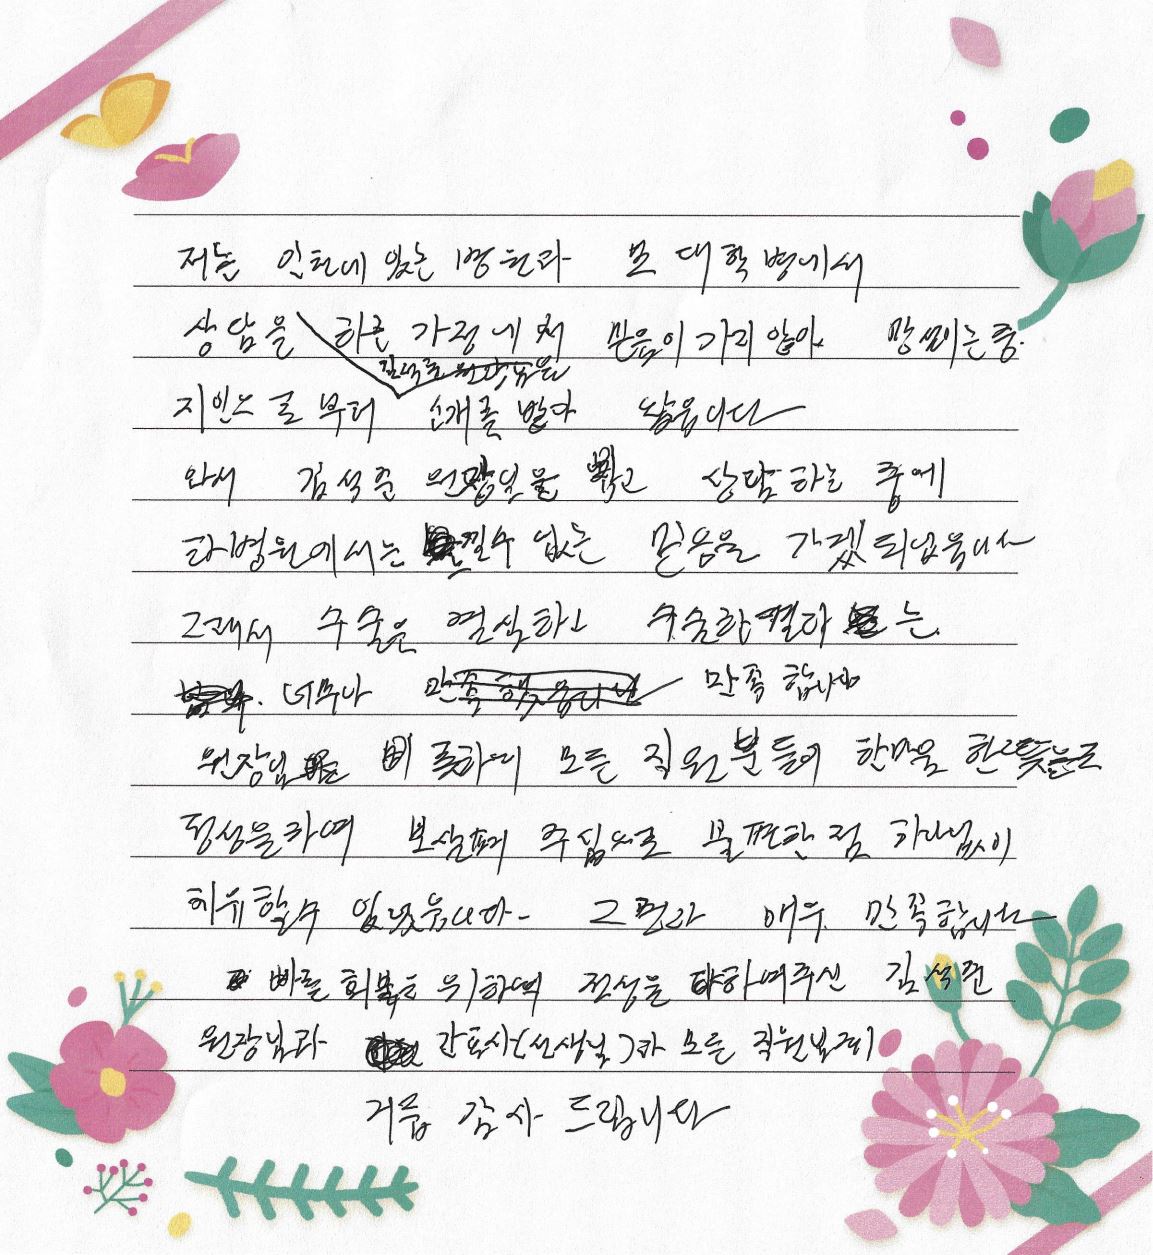 저는 인천에 있는 병원과 모 대학병에서
상담을 하른 가정에서 믿음이 가지 않아 망설이는중.
김석준 원장님을
지인으로부터 소개를 받아 왔읍니다
와서 김석준 원장님을 뵙고 상담하는 중에
타병원에서는 낄수 없는 믿음을 가겠되였읍니다
그래서 수술은 결심하고 수술한결과 는
너무나 만족합니다
원장님 비롯하여 모든 직원분들이 한마음 한뜻으로
정성을다하여 보살펴 주심으로 불편한점 하나없이
치유할수 있었읍니다. 그런라 매우 만족합니다
빠를 회복을 위하여 정성을 다하여주신 김석준
원장님과 간호사(선생님)과 모든 직원분께
거듭 감사 드립니다